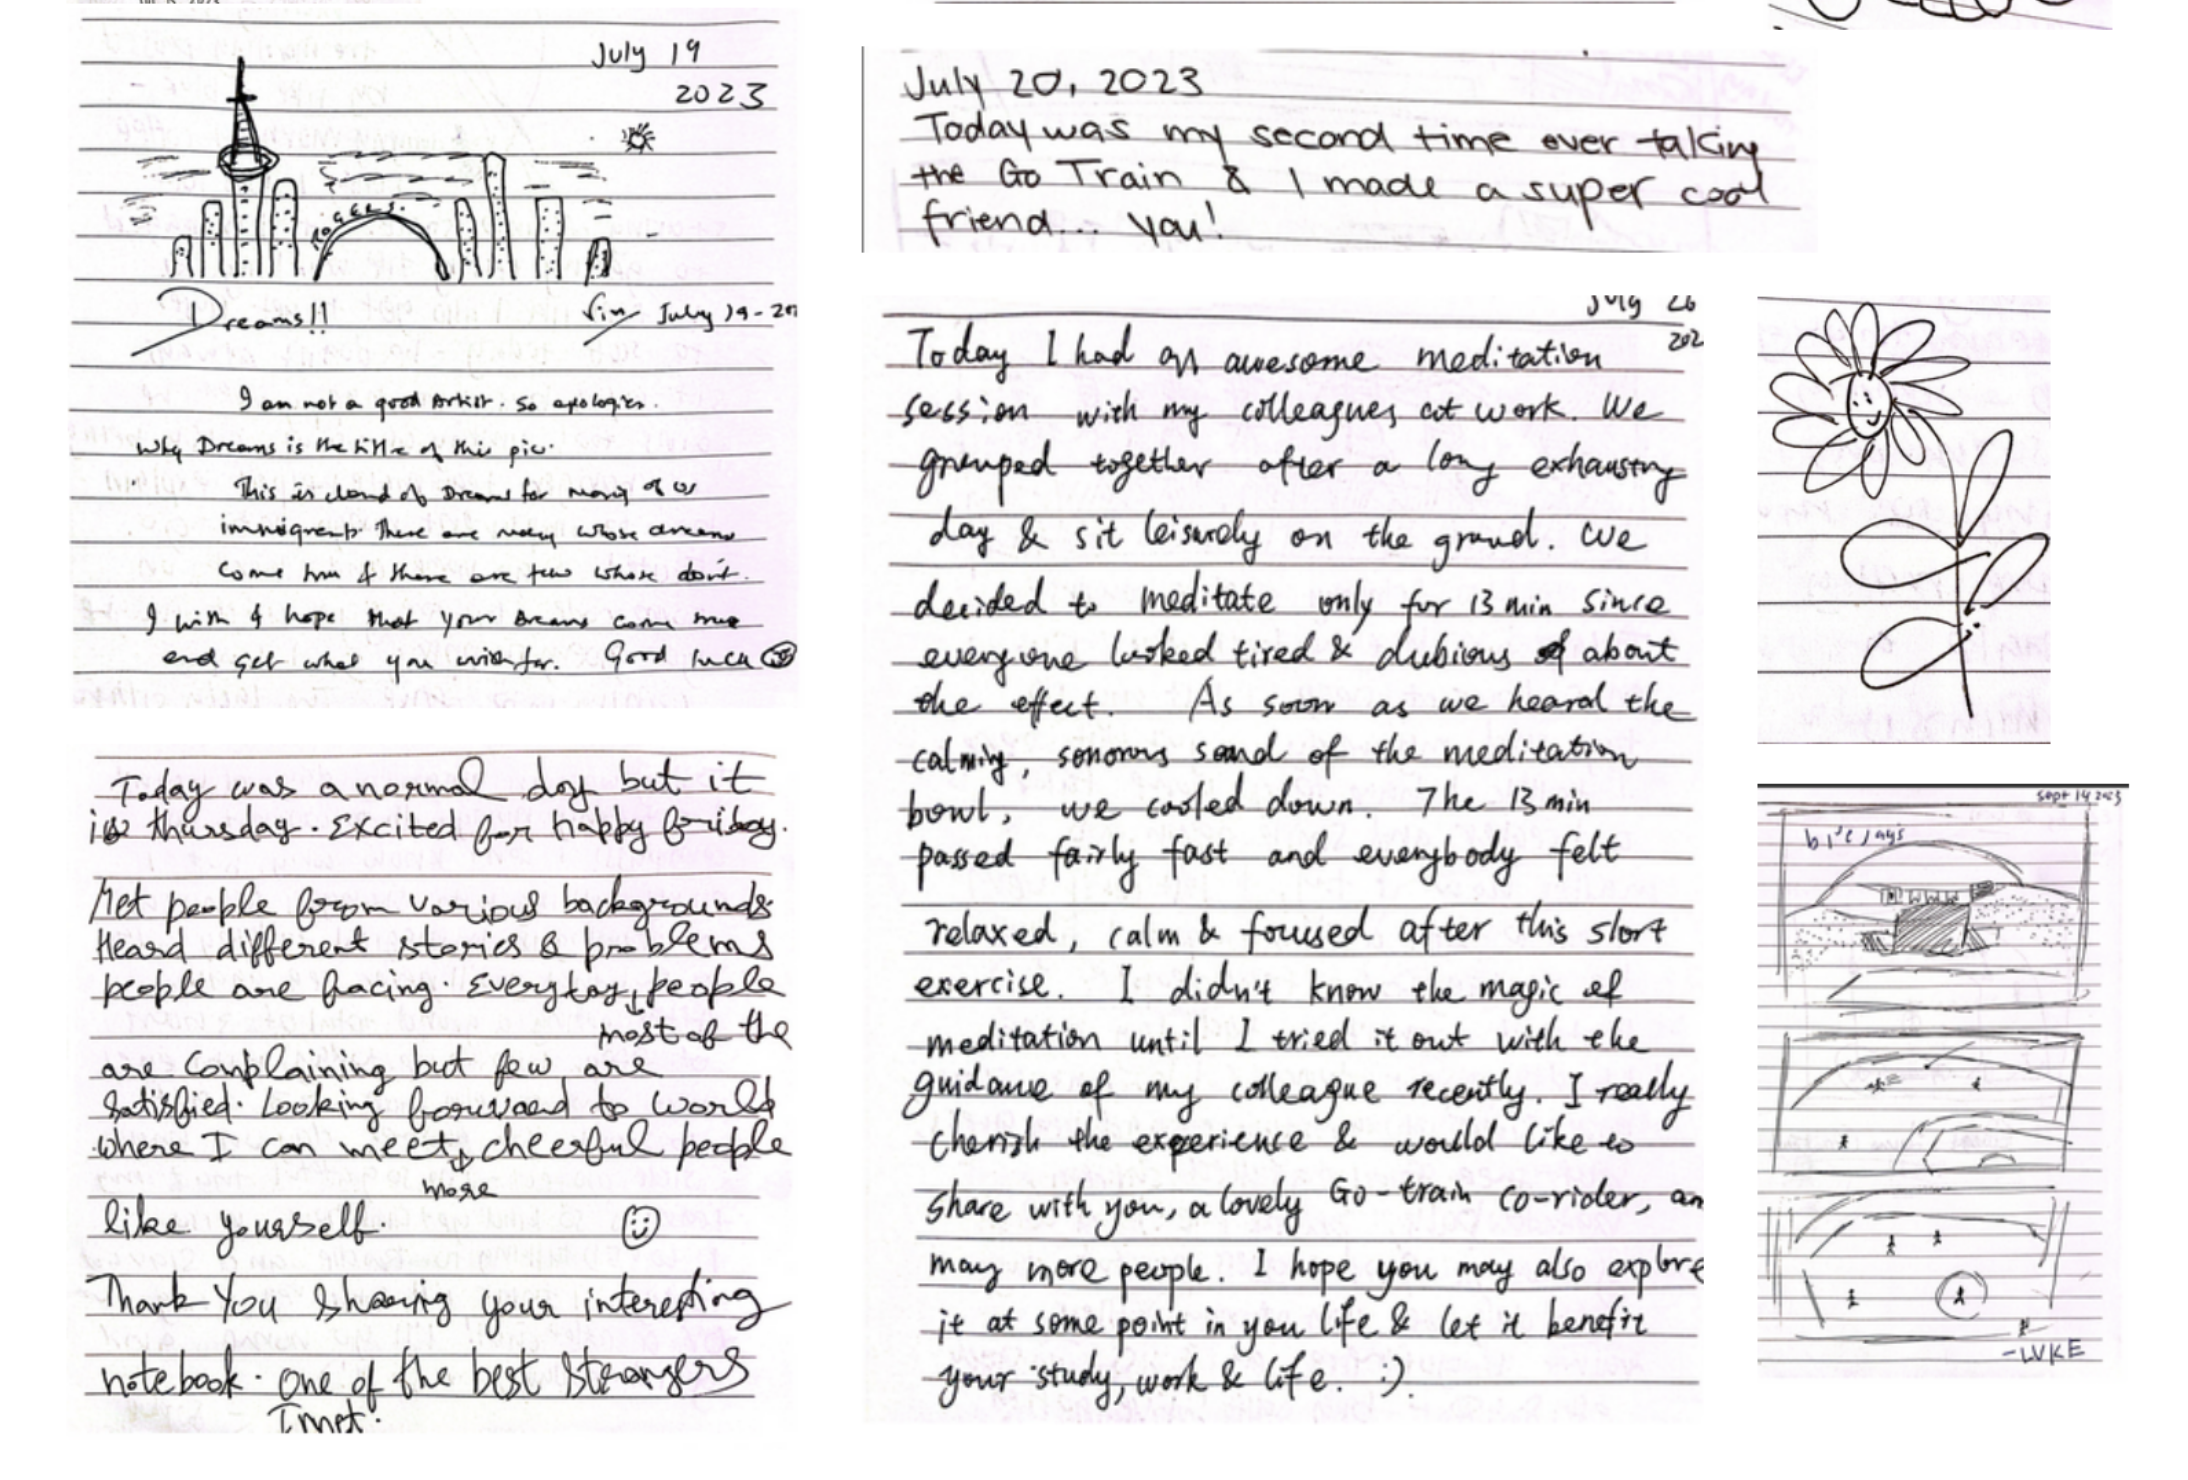 July 19
2023
ROGERS.
Dreams!!
July 19-20
I am not a good Artist. So apologies.
Why Dreams is the title of this pic.
This is land of Dreams for many of us
immigrants there are many whose dreams
come true & there are few whose don't.
I wish & hope that your dreams come true
and get what you wish for. Good luck
Today was a normal day but it
is thursday. Excited for happy friday.
Met people from various backgrounds
Heard different stories & problems
people are facing. Everyday people
most of the
are complaining but few are
satisfied. Looking forward to world
where I can meet cheerful people
more
like yourself.
Thank You sharing your interesting
notebook. One of the best strangers
I met.
July 20, 2023
Today was my second time ever taking
the Go Train & I made a super cool
friend... you!
July 26
202
Today I had an awesome meditation
session with my colleagues at work. We
grouped together after a long exhausting
day & sit leisurely on the ground. We
decided to meditate only for 13 min since
everyone looked tired & dubious about
the effect. As soon as we heard the
calming, sonorous sound of the meditation
bowl, we cooled down. The 13 min
passed fairly fast and everybody felt
relaxed, calm & focused after this short
exercise. I didn't know the magic of
meditation until I tried it out with the
guidance of my colleague recently. I really
cherish the experience & would like to
share with you, a lovely Go-train co-rider, an
may more people. I hope you may also explore
it at some point in you life & let it benefit
your study, work & life. :)
Sept 14 2023
blue jays
-LUKE